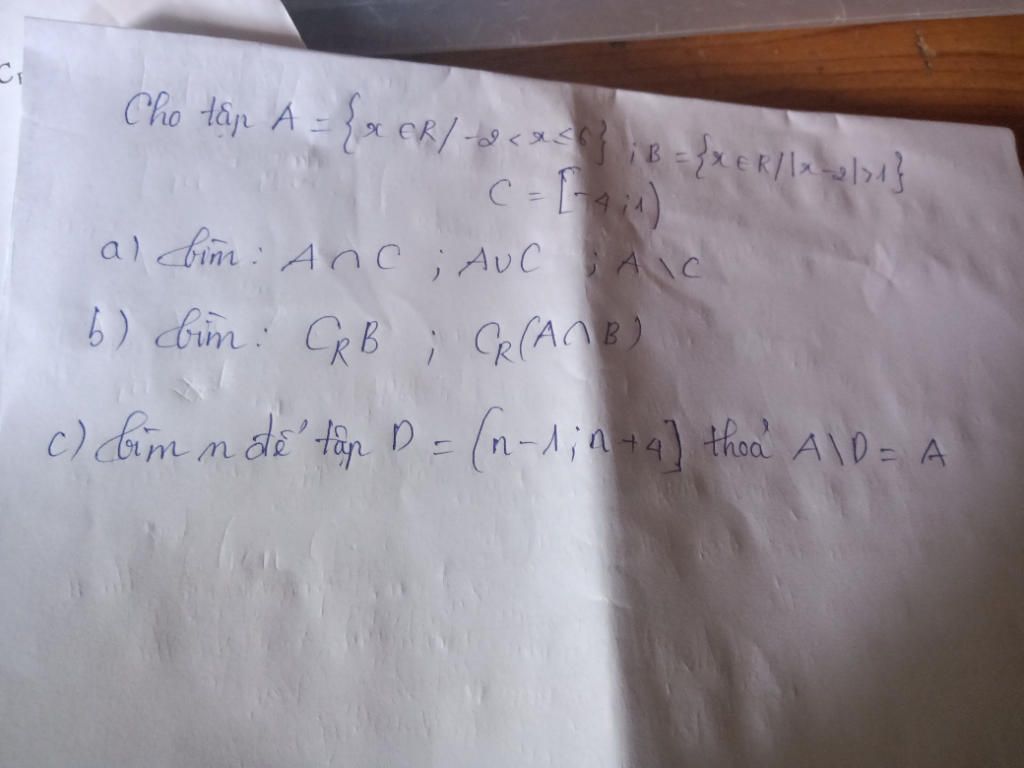 Cho tập A = {x ∈ R / -2 < x ≤ 6} ; B = {x ∈ R / |x-2| > 1}
C = [-4 ; 1)
a) Tìm : A ∩ C ; A ∪ C ; A \ C
b) Tìm : C_R B ; C_R (A ∩ B)
c) Tìm n để tập D = (n-1 ; n+4] thoả A \ D = A